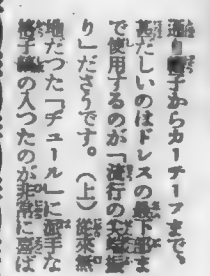 帽子からカーチーフまで、
甚だしいのはドレスの最下部ま
で使用するのが「流行の
り」ださうです。（上）從來無
地だつた「チュール」に派手な
格子縞の入つたのが非常に喜ば